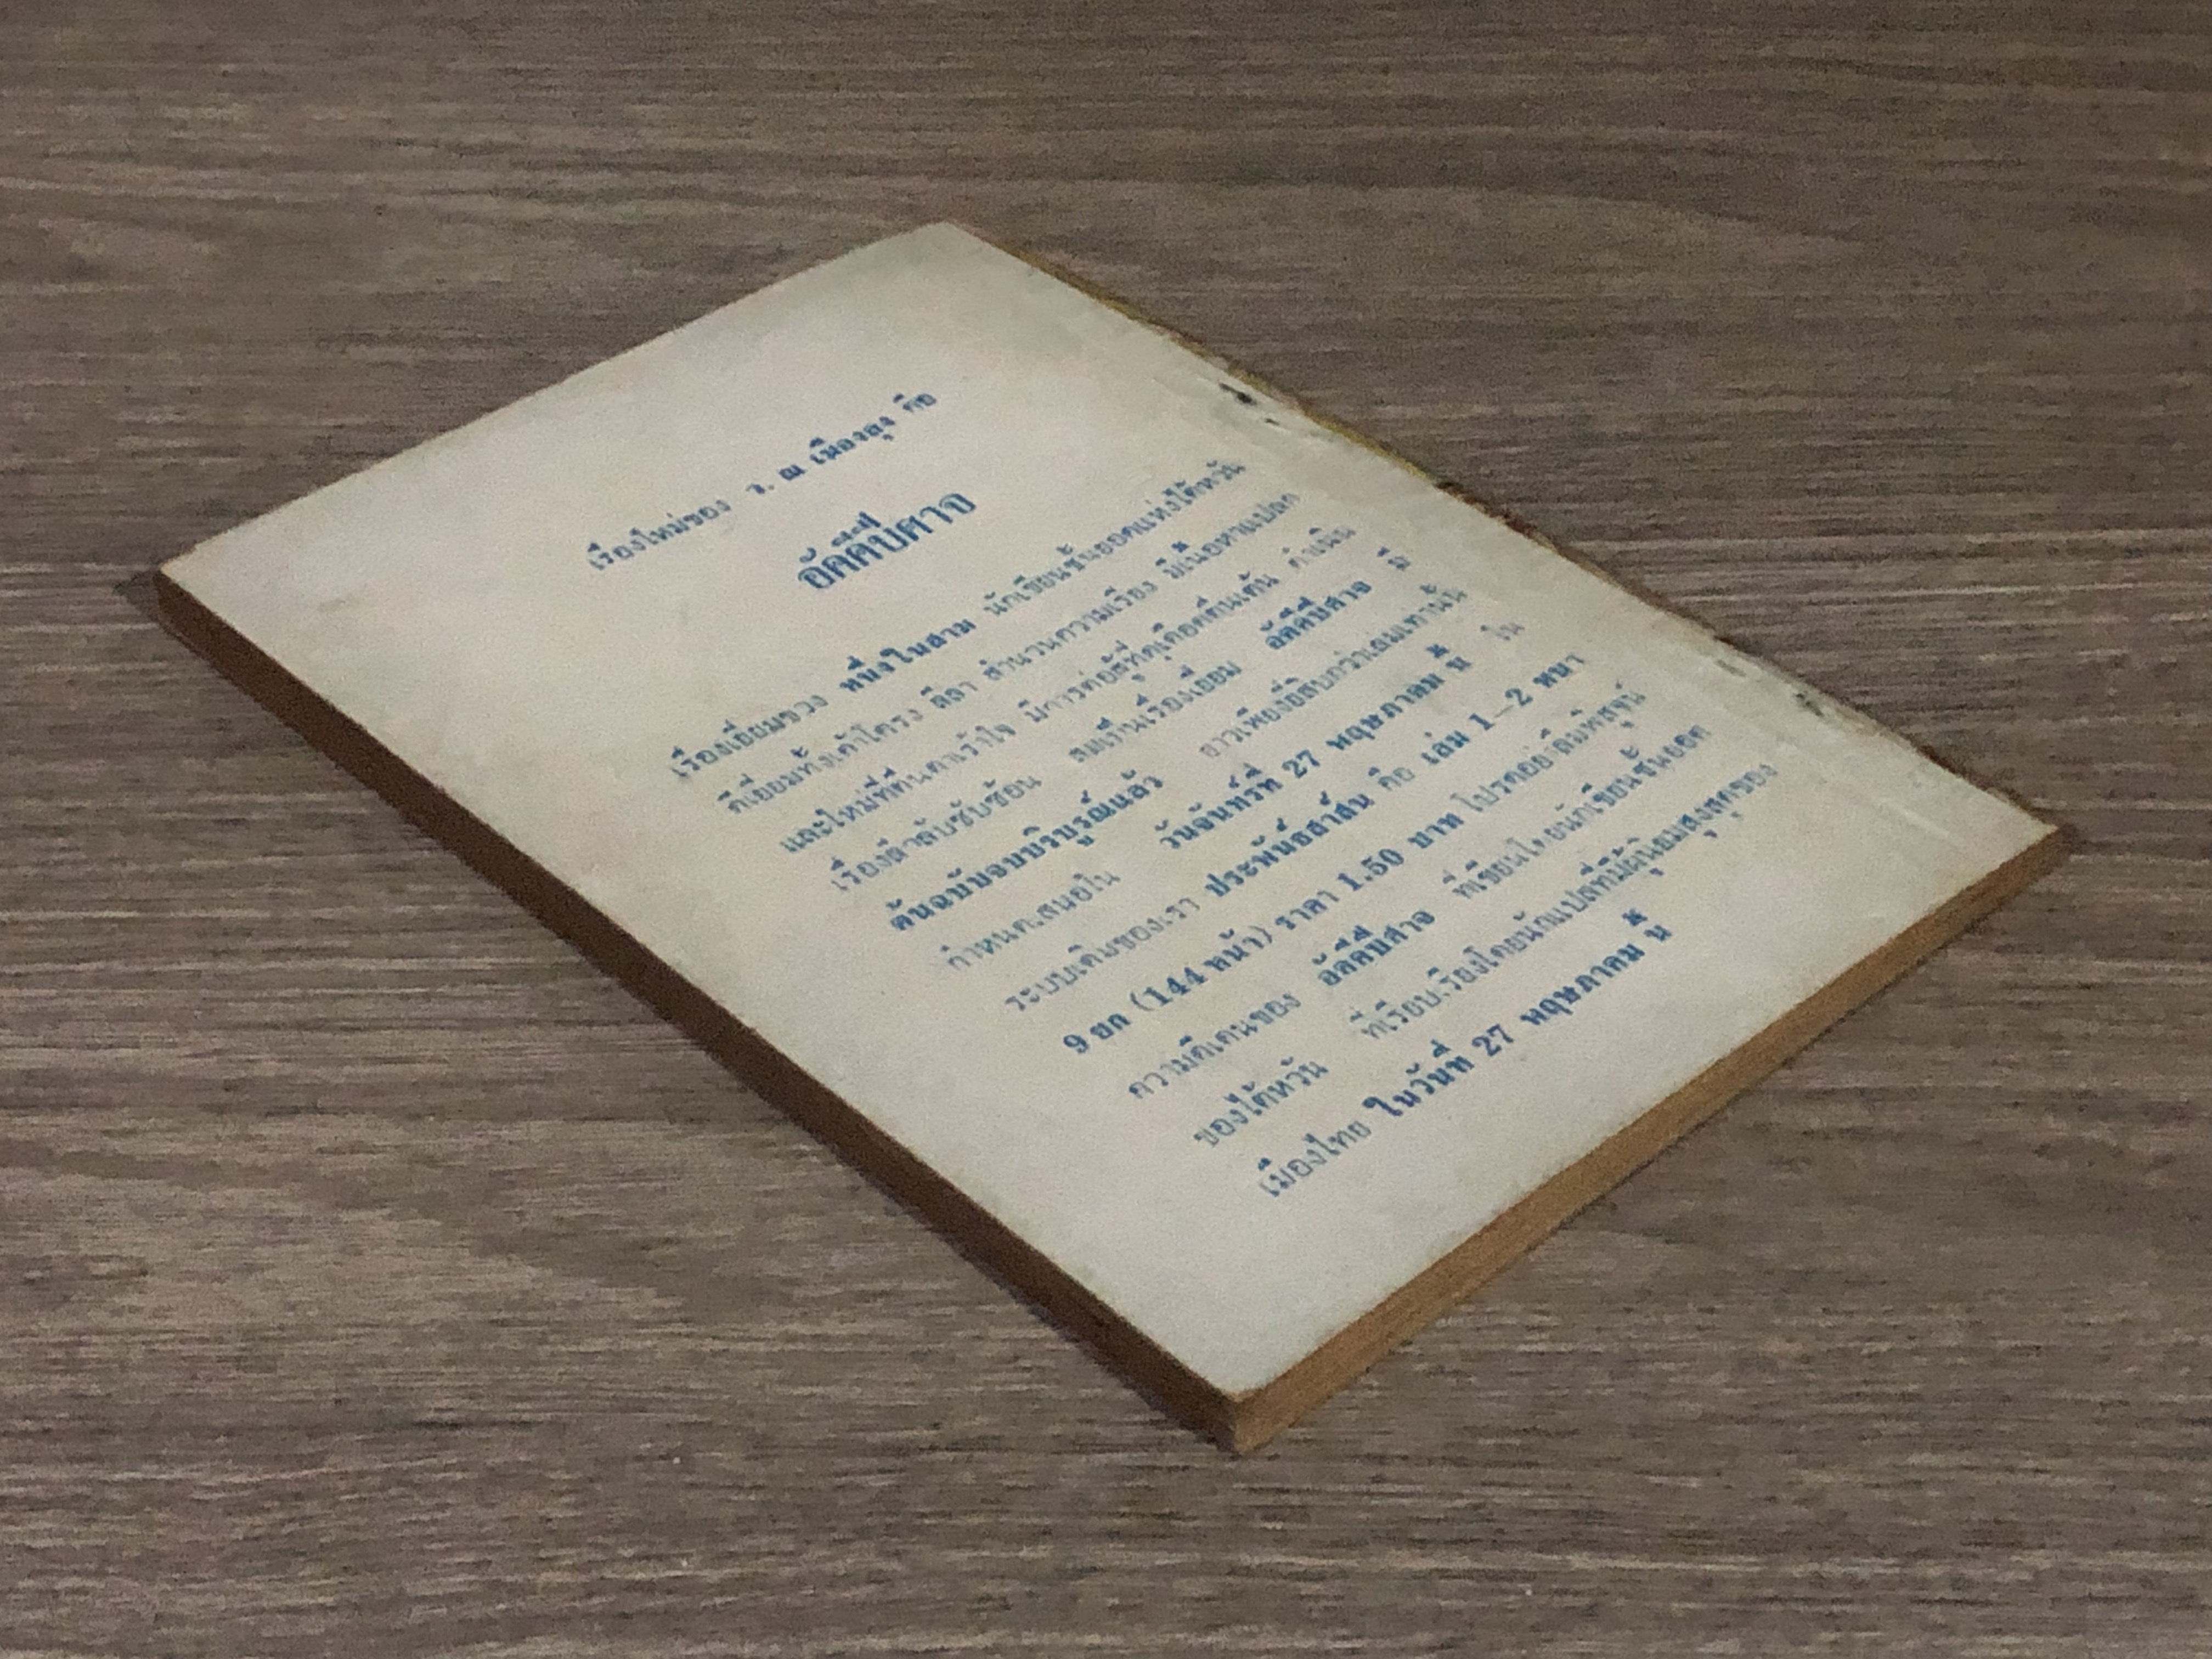 เรื่องใหม่ของ ว. ณ เมืองลุง คือ
อัคคีปีศาจ
เรื่องเยี่ยมของ หนึ่งในสาม นักเขียนชั้นยอดแห่งไต้หวัน
ดีเยี่ยมทั้งเค้าโครง ลีลา สำนวนความเรียง มีเนื้อหาแปลก
และใหม่ที่ตื่นตาเร้าใจ มีการต่อสู้ที่ดุเดือดตื่นเต้น ดำเนิน
เรื่องลึกลับซับซ้อน สมเป็นเรื่องเยี่ยม อัคคีปีศาจ มี
ต้นฉบับจบบริบูรณ์แล้ว ยาวเพียงยี่สิบกว่าเล่มเท่านั้น
กำหนดเสนอใน วันจันทร์ที่ 27 พฤษภาคม นี้ ใน
ระบบเดิมของเรา ประพันธ์สาส์น คือ เล่ม 1–2 หนา
9 ยก (144 หน้า) ราคา 1.50 บาท โปรดอย่าลืมพิสูจน์
ความดีเด่นของ อัคคีปีศาจ ที่เขียนโดยนักเขียนชั้นยอด
ของไต้หวัน ที่เรียบเรียงโดยนักแปลที่มีผู้นิยมสูงสุดของ
เมืองไทย ในวันที่ 27 พฤษภาคม นี้